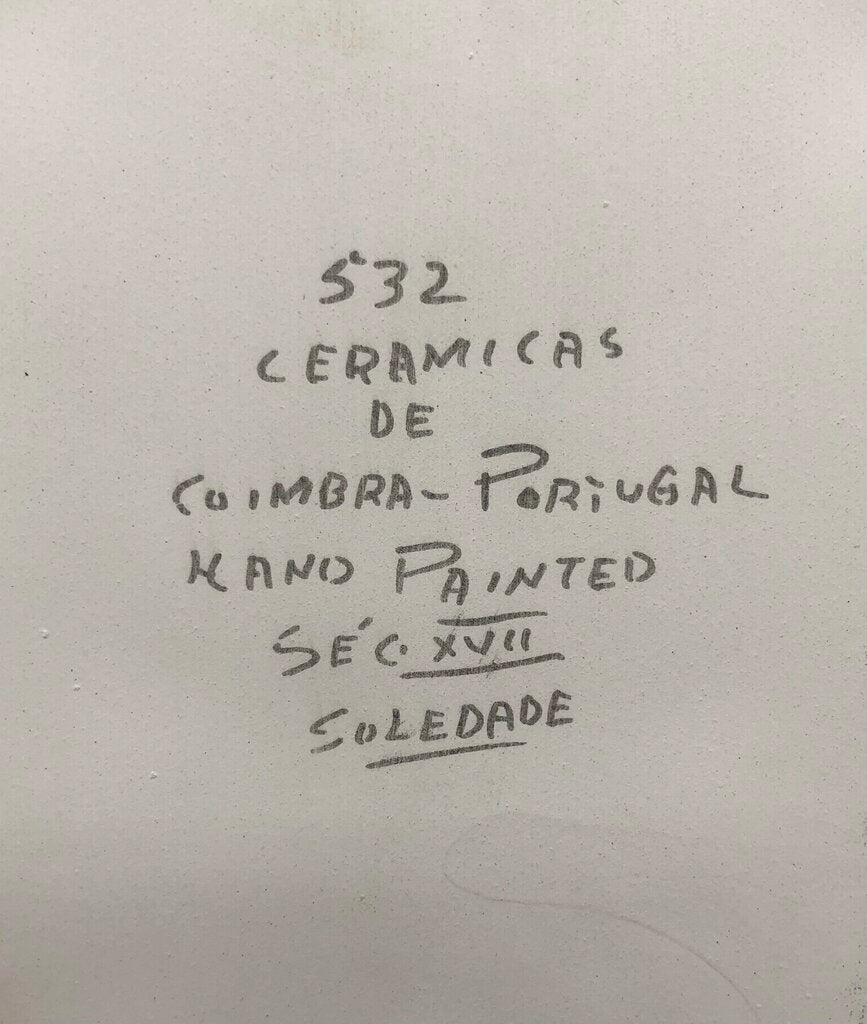 532
CERAMICAS
DE
COIMBRA - PORTUGAL
HAND PAINTED
SÉC. XVII
SOLEDADE